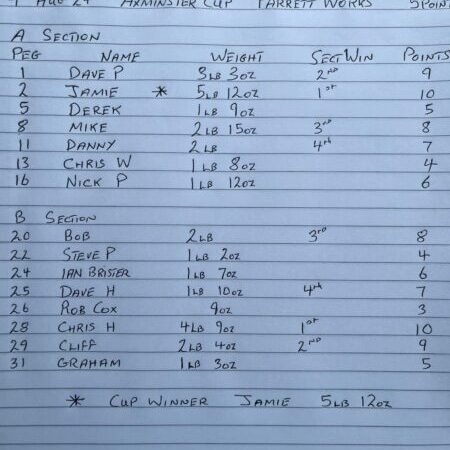 1 Aug 24 Axminster Cup Parrett Works 5 Point
A Section
Peg Name Weight Sect Win Points
1 Dave P 3lb 3oz 2nd 9
2 Jamie * 5lb 12oz 1st 10
5 Derek 1lb 9oz 5
8 Mike 2lb 15oz 3rd 8
11 Danny 2lb 4th 7
13 Chris W 1lb 8oz 4
16 Nick P 1lb 12oz 6
B Section
20 Bob 2lb 3rd 8
22 Steve P 1lb 2oz 4
24 Ian Brister 1lb 7oz 6
25 Dave H 1lb 10oz 4th 7
26 Rob Cox 9oz 3
28 Chris H 4lb 9oz 1st 10
29 Cliff 2lb 4oz 2nd 9
31 Graham 1lb 3oz 5
* Cup Winner Jamie 5lb 12oz